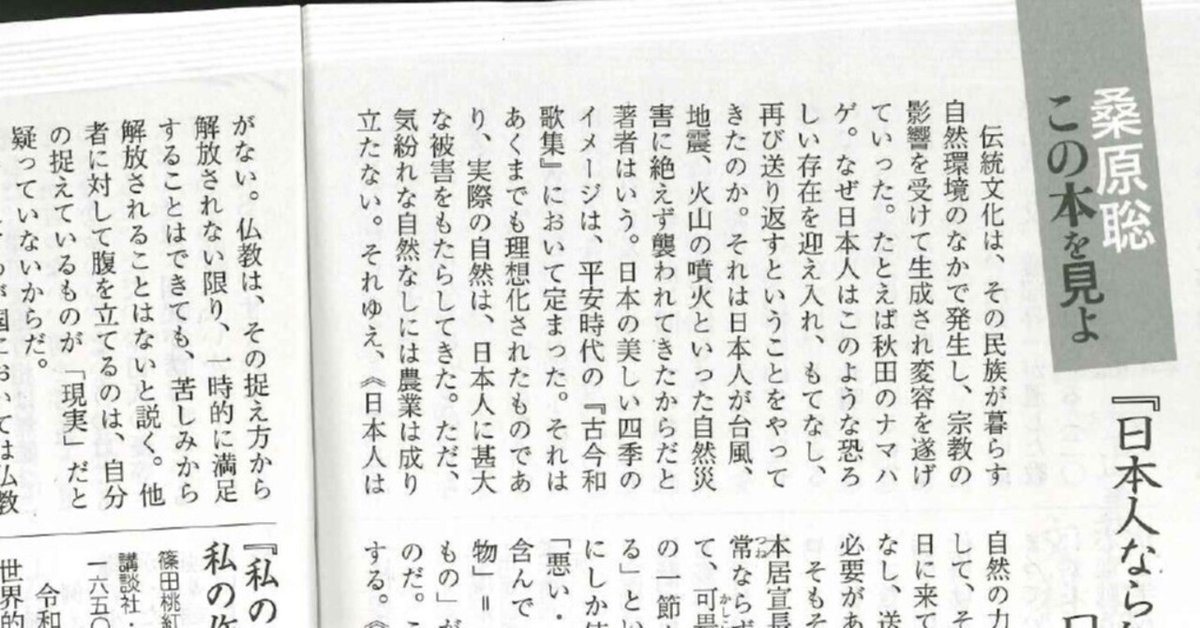 桑原聡
この本を見よ
『日本人なら
伝統文化は、その民族が暮らす
自然環境のなかで発生し、宗教の
影響を受けて生成され変容を遂げ
ていった。たとえば秋田のナマハ
ゲ。なぜ日本人はこのような恐ろ
しい存在を迎え入れ、もてなし、
再び送り返すということをやって
きたのか。それは日本人が台風、
地震、火山の噴火といった自然災
害に絶えず襲われてきたからだと
著者はいう。日本の美しい四季の
イメージは、平安時代の『古今和
歌集』において定まった。それは
あくまでも理想化されたものであ
り、実際の自然は、日本人に甚大
な被害をもたらしてきた。ただ、
気紛れな自然なしには農業は成り
立たない。それゆえ、《日本人は
自然の力
して、そ
日に来て
なし、送
必要があ
そもそ
本居宣長
常ならず
て、可畏
の一節
る」とい
にしか使
「悪い・
含んで
物」＝
もの」が
のだ。こ
する。《
がない。仏教は、その捉え方から
解放されない限り、一時的に満足
することはできても、苦しみから
解放されることはないと説く。他
者に対して腹を立てるのは、自分
の捉えているものが「現実」だと
疑っていないからだ。
が国においては仏教
『私の
私の
篠田桃紅
講談社・
一六五〇
令和
世界的